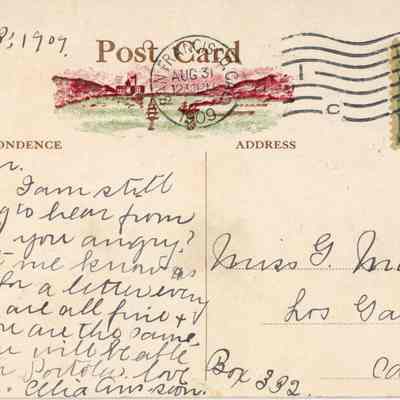 8, 1909
Post Card
SAN FRANCISCO, CA
AUG 31
1909
1
C
ONDENCE
ADDRESS
r.
I am still
g to hear from
you angry?
t me know
for a letter every
are all fine &
are the same
will be able
Portola. love
soon.
Miss G. M
Los Ga
Box 332.
Ca